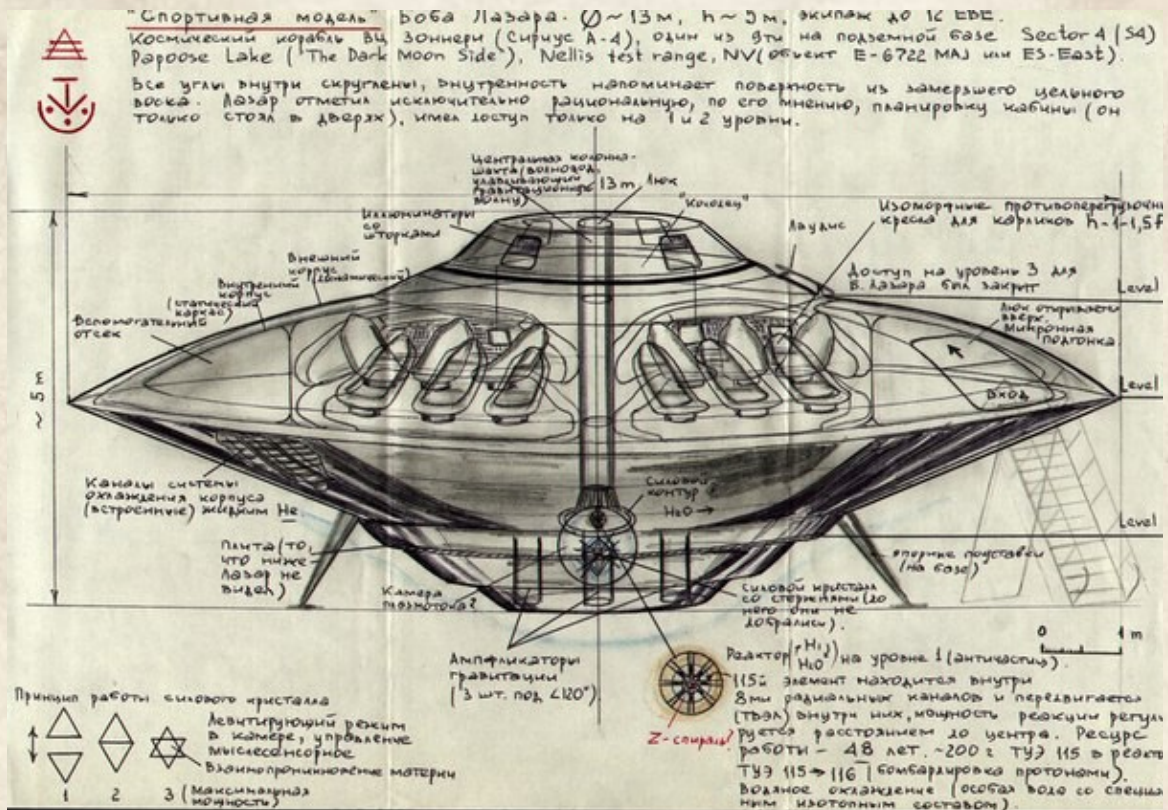 "Спортивная модель" Боба Лазара. Ø~13м, h~5м, экипаж до 12 EBE.
Космический корабль ВЦ Зоннери (Сириус А-4), один из 9ти на подземной базе Sector 4 (S4)
Papoose Lake ("The Dark Moon Side"), Nellis test range, NV (объект E-6722 MAJ или ES-East).
Все углы внутри скруглены, внутренность напоминает поверхность из замершего цельного
воска. Лазар отметил исключительно рациональную, по его мнению, планировку кабины (он
только стоял в дверях), имел доступ только на 1 и 2 уровни.
Центральная колонна-
шахта (волновод,
улавливающий
гравитационную
волну)
13 m
Люк
"Колодец"
Иллюминаторы
со
шторками
Лаудис
Изоморфные противоперегрузочн
кресла для карликов h-1-1,5
Внешний
корпус (динамический)
Внутренний
корпус
(статический
каркас)
Вспомогательный
отсек
Доступ на уровень 3 для
Б. Лазара был закрит
Level
Люк открывается
вверх.
Микронная
подгонка
Level
Вход
~ 5 m
Каналы системы
охлаждения корпуса
(встроенные) жидким He
Силовой
контур
H₂O →
Level
Плита (то,
что ниже
Лазар не
видел)
опорные подставки
(на базе)
Камера
плазмотока?
Силовой кристалл
со стержнями (до
него они не
добрались).
Ампфликаторы
гравитации
(3 шт. под <120°)
0 1 m
Реактор (H₂O) на уровне 1 (античастиц).
115й элемент находится внутри
8ми радиальных каналов и передвигается
(твэл) внутри них, мощность реакции регули
руется расстоянием до центра. Ресурс
работы - 48 лет. ~200 г ТУЭ 115 в реакто
ТУЭ 115→116 (бомбардировка протонами).
Водяное охлаждение (особая вода со специал
ным изотопным составом)
Z-спираль?
Принцип работы силового кристалла
Левитирующий режим
в камере, управление
мыслесенсорное
Взаимопроникновение материи
1 2 3 (Максимальная
мощность)